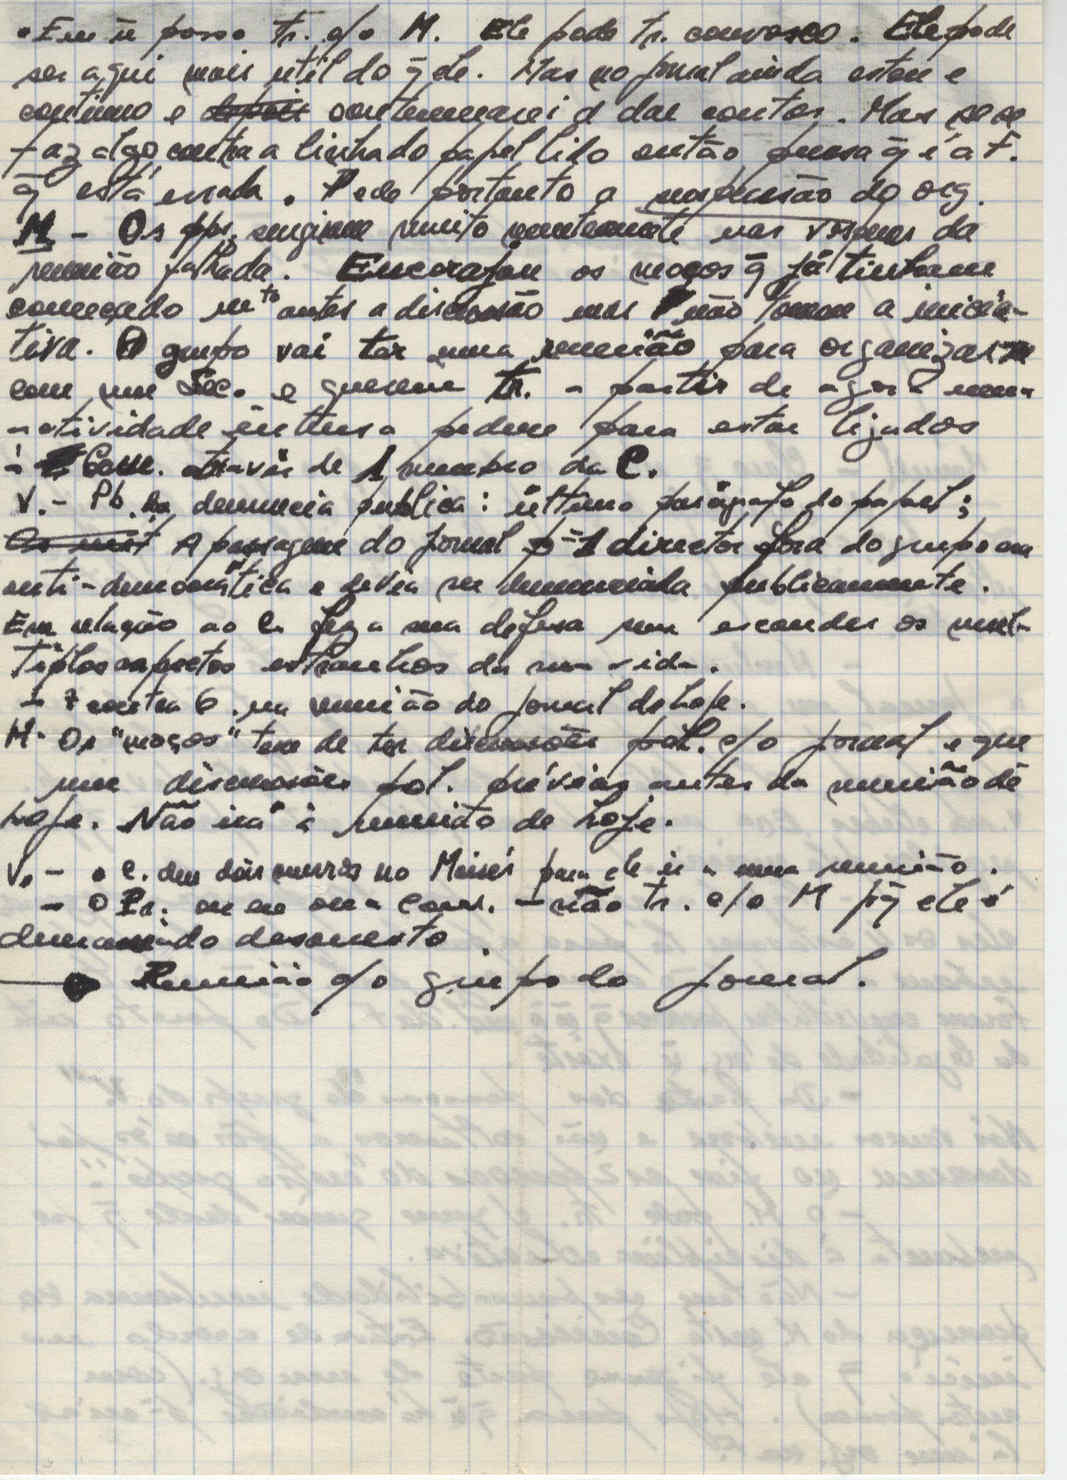 • Eu ñ posso tr. c/o M. Ele pode tr. convosco. Ele pode
ser aqui mais util do q̃ de. Mas no jornal ainda estou e
continuo e continuarei a dar contas. Mas se se
faz algo contra a linha do papel lido então pensa q̃ é a F.
q̃ está errada. Pede portanto a suspensão do org.
M - Os surgiram muito nas vesperas da
reunião falhada. Encorajou os moços q̃ já tinham
começado mto antes a discussão mas não tomou a inicia-
tiva. O grupo vai ter uma reunião para organizar
com um Sec. e querem tr. a partir de agora numa
actividade intensa pedem para estar ligados
à Com. através de 1 membro da C.
V. - Pb. da denuncia publica: último parágrafo do papel;
A passagem do jornal p= 1 director fora do grupo era
anti-democrática e devia ser denunciada publicamente.
Em relação ao C. fez a sua defesa sem esconder os múl-
tiplos aspectos estranhos da sua vida.
- 7 contra 6 na reunião do jornal de hoje.
M- Os "moços" tem de ter discussões pol. c/o jornal e que-
rem discussões pol. prévias antes da reunião de
hoje. Não irá à reunião de hoje.
V. - o C. deu dois murros no Moisés para ele ir a uma reunião.
- O Pr. - não tr. c/o M pq̃ ele é
demasiado desonesto.
→ Reunião c/o grupo do jornal.